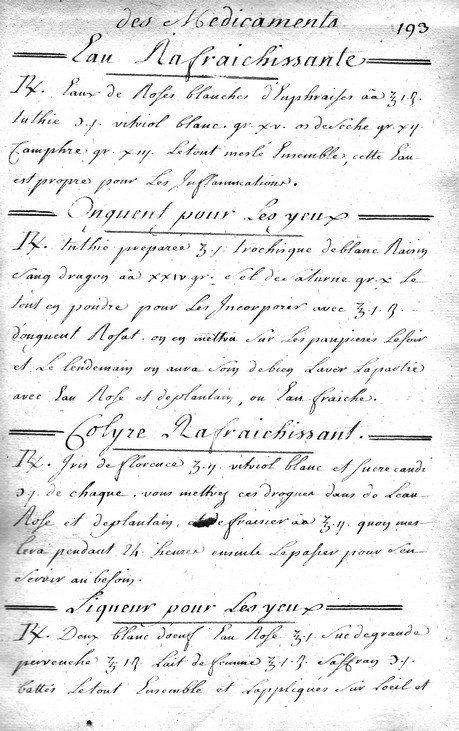 des Medicaments 193
Eau Rafraichissante
℞. Eaux de Roses blanches d'Euphraises āā ℥.1.ß.
tuthie ℈.j. vitriol blanc. gr. xv. os de sêche gr. xij.
Camphre gr. xij. Le tout meslé Ensemble, cette Eau
est propre pour Les Inflammations.
Onguent pour Les yeux
℞. tuthie préparée ʒ.j. trochisque de blanc Raisin
sang dragon āā xxiv gr. sel de saturne gr. x Le
tout en poudre pour Les Incorporer avec ℥.1.ß.
d'onguent Rosat. on en mettra sur Les paupieres Le soir
et Le lendemain on aura soin de bien Laver La partie
avec Eau Rose et de plantain, ou Eau fraiche.
Colyre Rafraichissant.
℞. Iris de florence ʒ.ij. vitriol blanc et sucre candi
℈.j. de chaque. vous mettrez ces drogues dans de Leau
Rose et de plantain, de fraisier āā ℥.ij. quon mes-
lera pendant 24. heures ensuite Le passer pour s'en
servir au besoin.
Liqueur pour Les yeux
℞. Deux blanc d'oeuf Eau Rose ℥.1. Suc de grande
pervenche ℥.1ß. Lait de femme ℥.1.ß. Saffran ℈.j.
battés Le tout Ensemble et L'appliqués sur L'oeil et